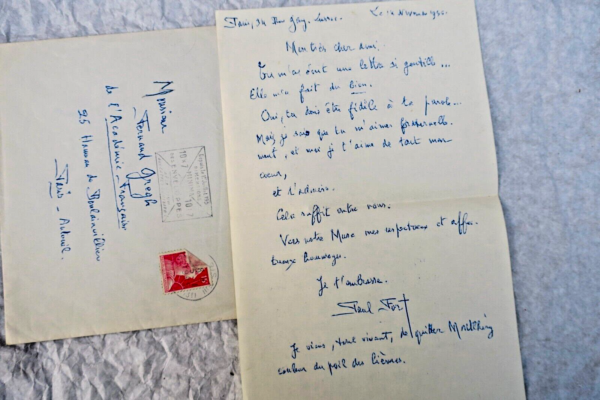 Paris, 34 Rue Gay-Lussac. Le 12 Novembre
Mon très cher ami.
Tu m'as écrit une lettre si gentille...
Elle m'a fait du bien.
Oui, tu dois être fidèle à ta parole...
Mais je sais que tu m'aimes fraternelle-
ment, et moi je t'aime de tout mon
cœur,
et t'admire.
Cela suffit entre nous.
Vers votre Muse mes respectueux et affec-
tueux hommages.
Je t'embrasse.
Paul Fort
Je viens, vivant, de quitter Montlhéry
couleur du poil des lièvres.
Monsieur
Fernand Gregh
de l'Académie-Française
25 Hameau de Boulainvilliers
Paris-Auteuil.